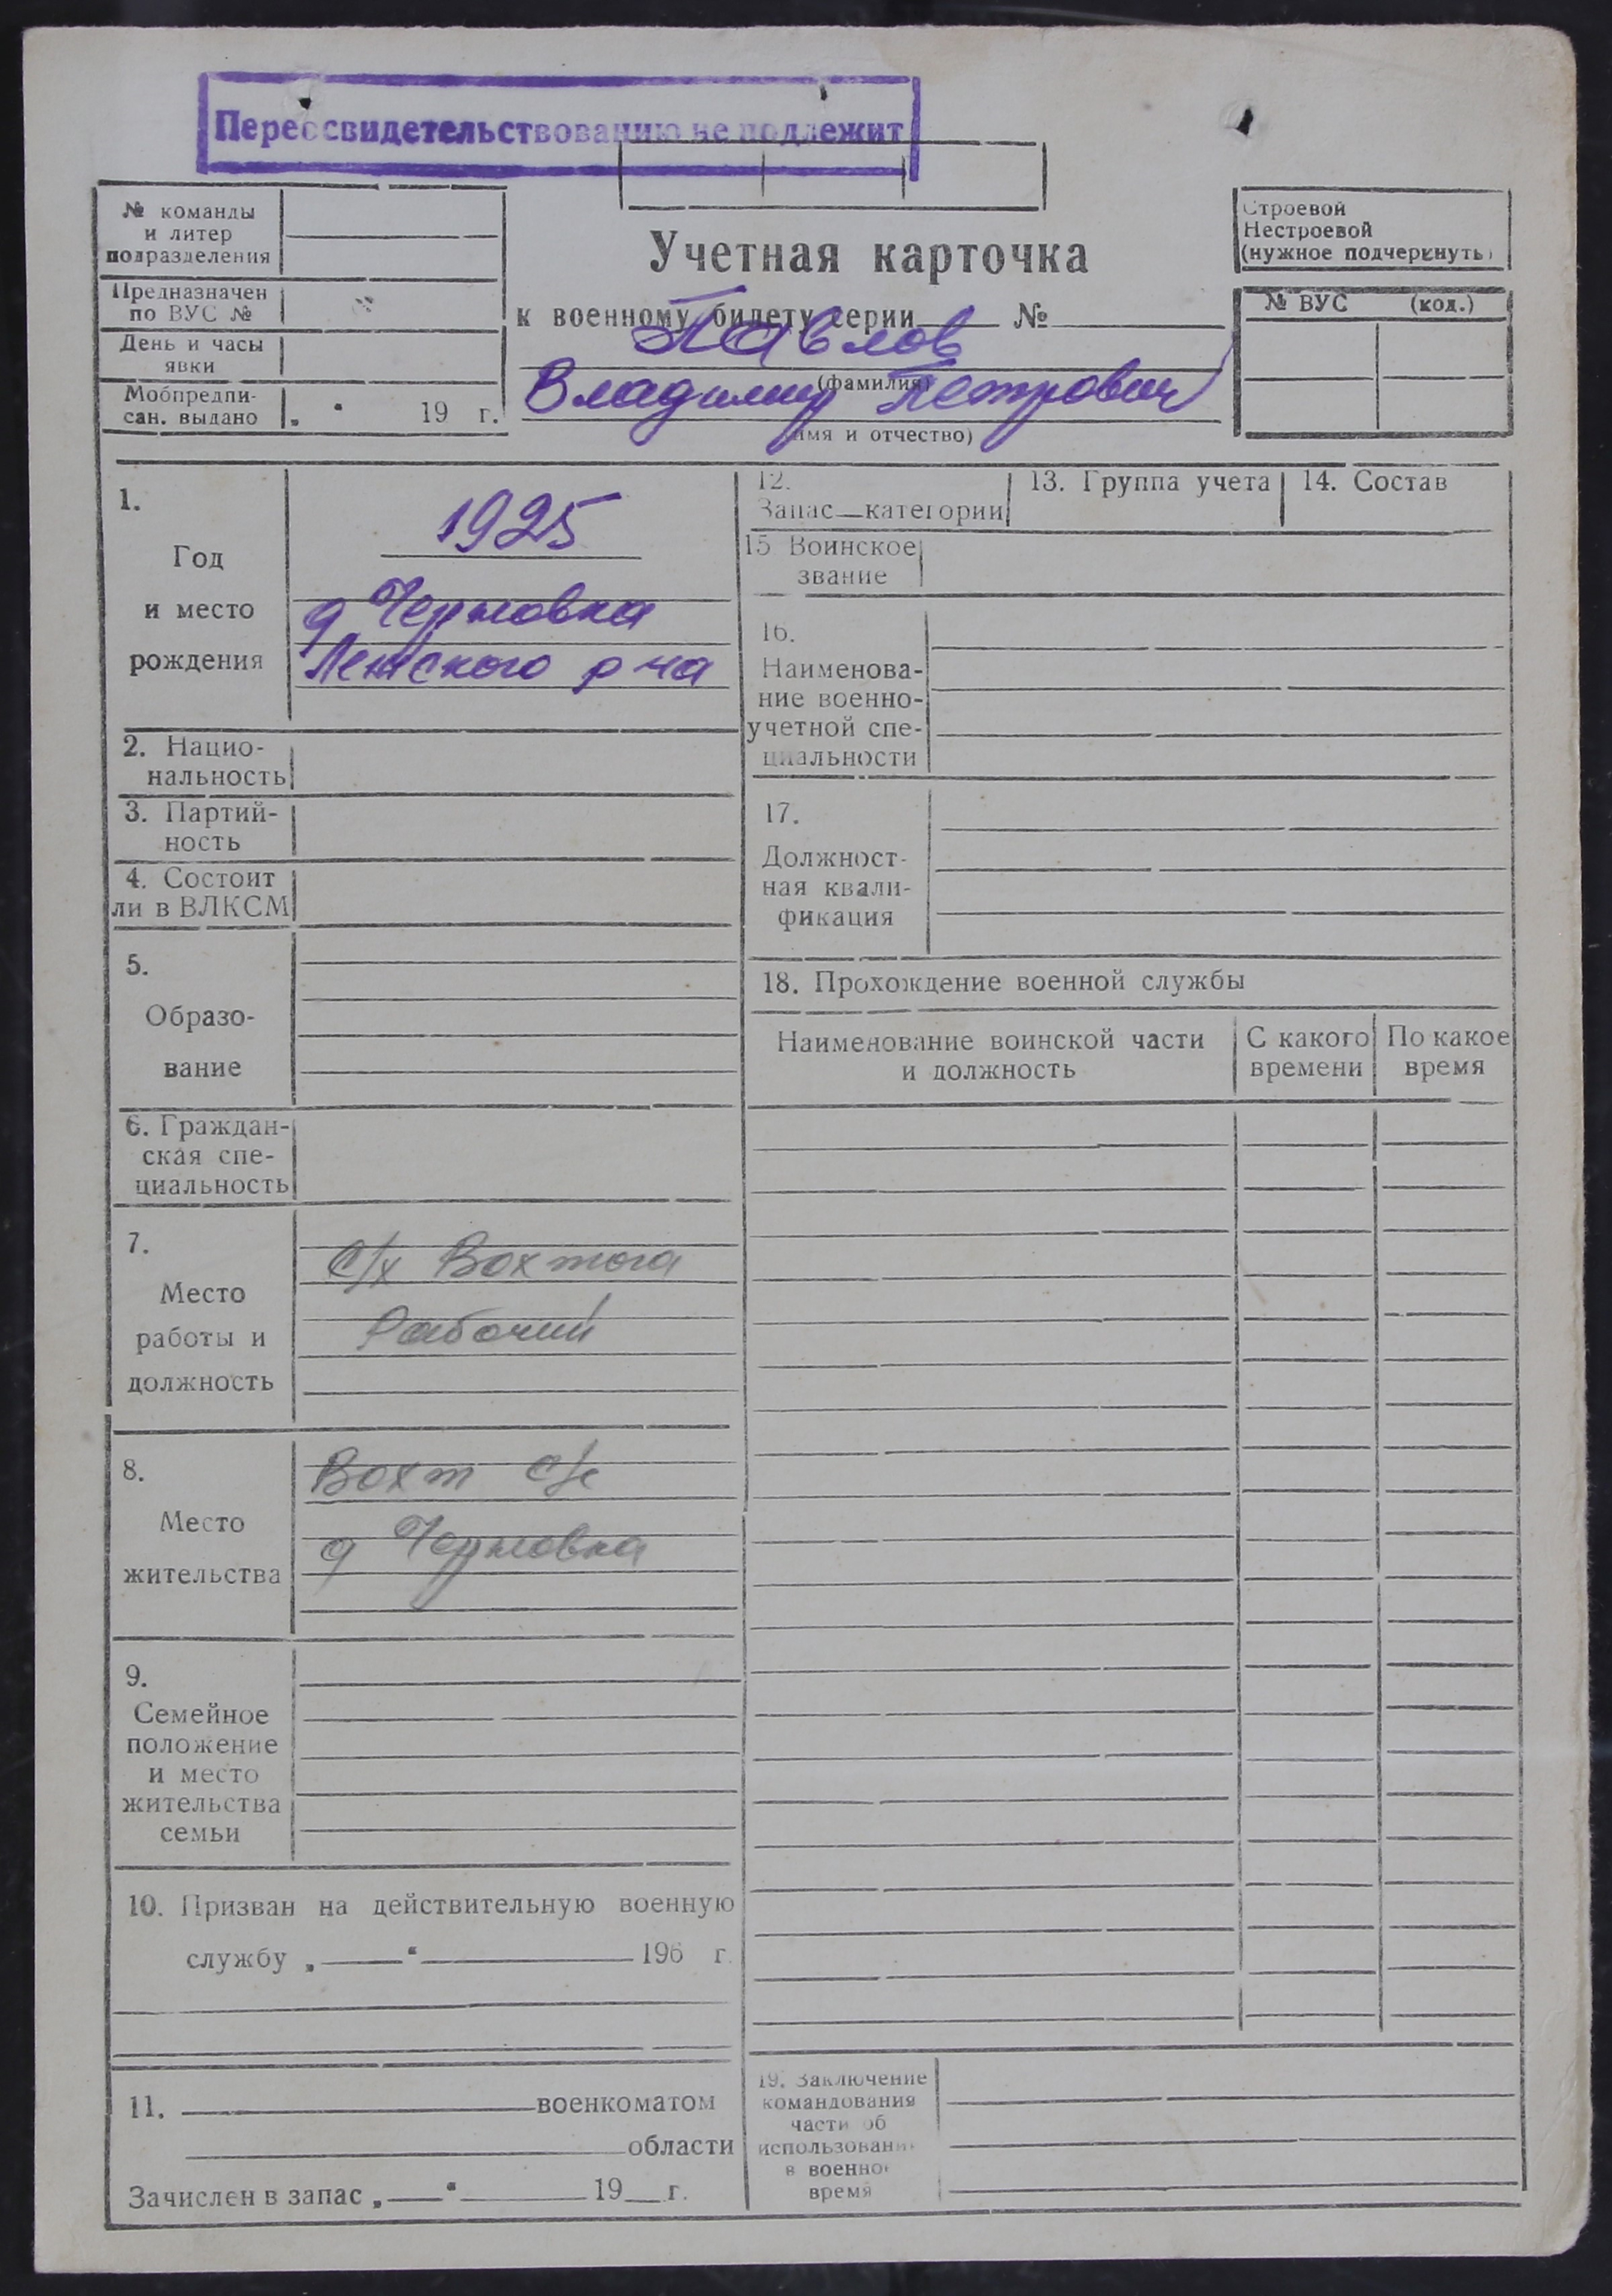 Переосвидетельствованию не подлежит
№ команды
и литер
подразделения
Предназначен
по ВУС №
День и часы
явки
Мобпредпи-
сан. выдано „ “ 19 г.
Учетная карточка
к военному билету серии №
Павлов
(фамилия)
Владимир Петрович
(имя и отчество)
Строевой
Нестроевой
(нужное подчеркнуть)
№ ВУС (код.)
1.
Год
и место
рождения
1925
д Чермовка
р на
2. Нацио-
нальность
3. Партий-
ность
4. Состоит
ли в ВЛКСМ
5.
Образо-
вание
6. Граждан-
ская спе-
циальность
7.
Место
работы и
должность
с/х Вохтога
Рабочий
8.
Место
жительства
Вохт с/с
д Чермовка
9.
Семейное
положение
и место
жительства
семьи
10. Призван на действительную военную
службу „ “ 196 г.
11. военкоматом
области
Зачислен в запас „ “ 19 г.
12.
Запас—категории
13. Группа учета
14. Состав
15 Воинское
звание
16.
Наименова-
ние военно-
учетной спе-
циальности
17.
Должност-
ная квали-
фикация
18. Прохождение военной службы
Наименование воинской части
и должность
С какого
времени
По какое
время
19. Заключение
командования
части об
использовани
в военное
время